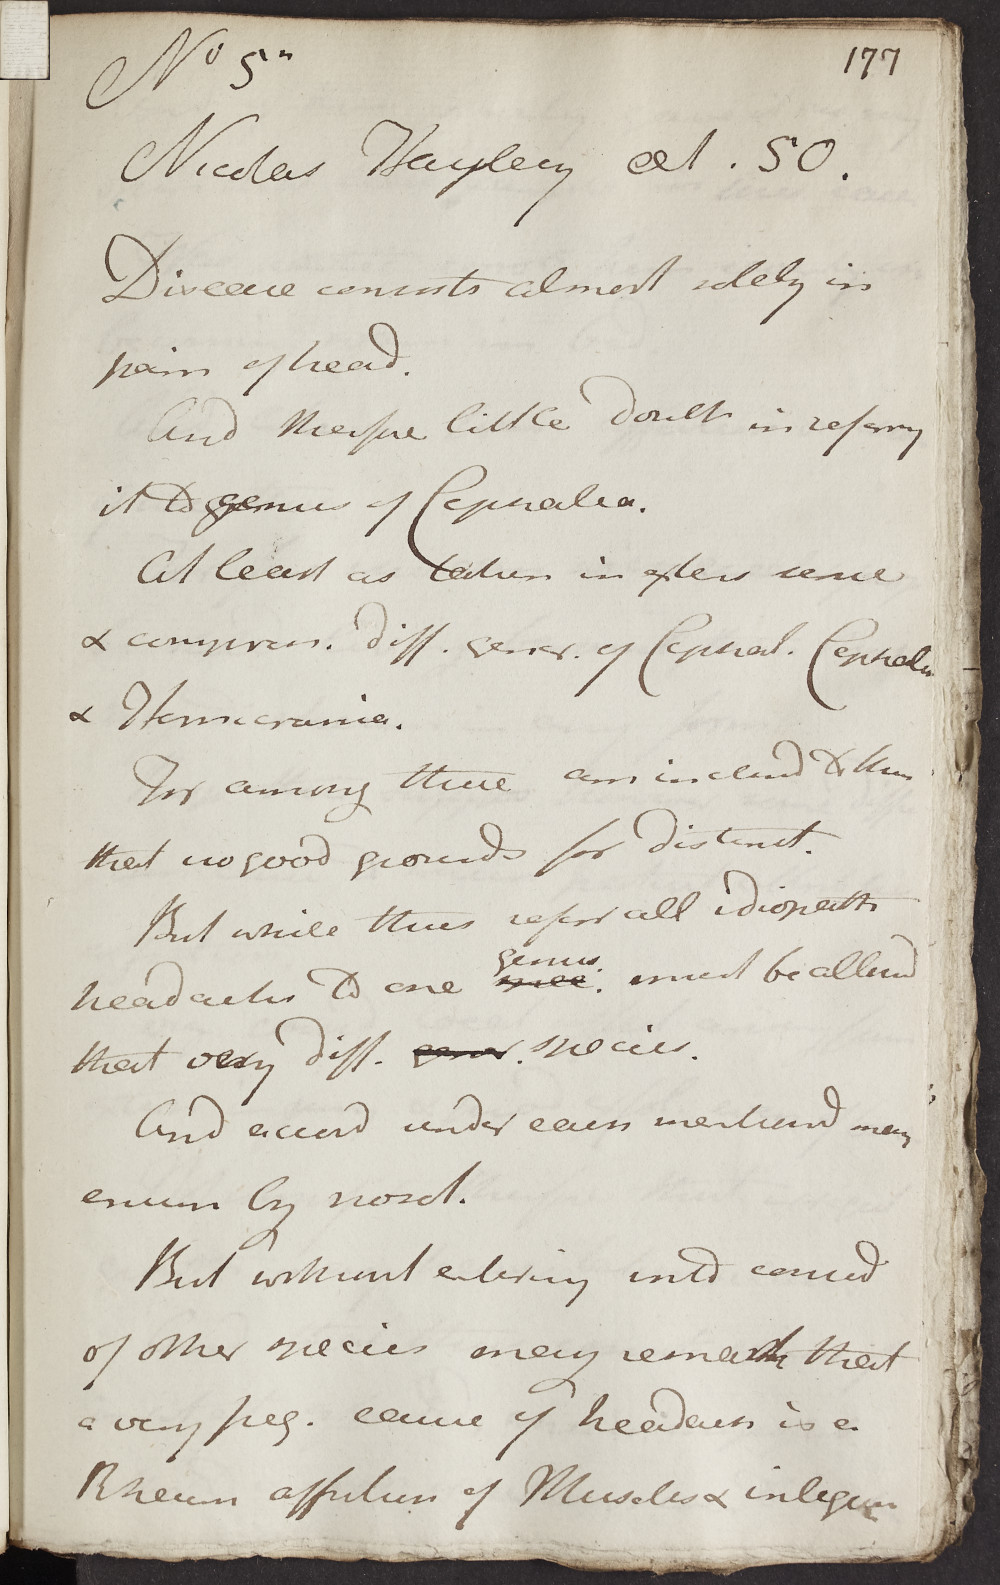 No 5"
177
Nicolas Hayley aet. 50.
Disease consists almost solely in
pain of head.
And therefore little doubt in referrg
it to genus of Cephalea.
At least as taken in extens sense
& compreh. diff. gener. of Cephal. Cephalea
& Hemicrania.
For among these am inclind to think
that no good grounds for distinct.
But while thus refer all idiopath
headachs to one genus. must be allowd
that very diff. species.
And accord under each mentiond many
enum by nosol.
But without entering into consid
of other species may remark that
a very freq. cause of headach is a
Rheum affection of Muscles & integum